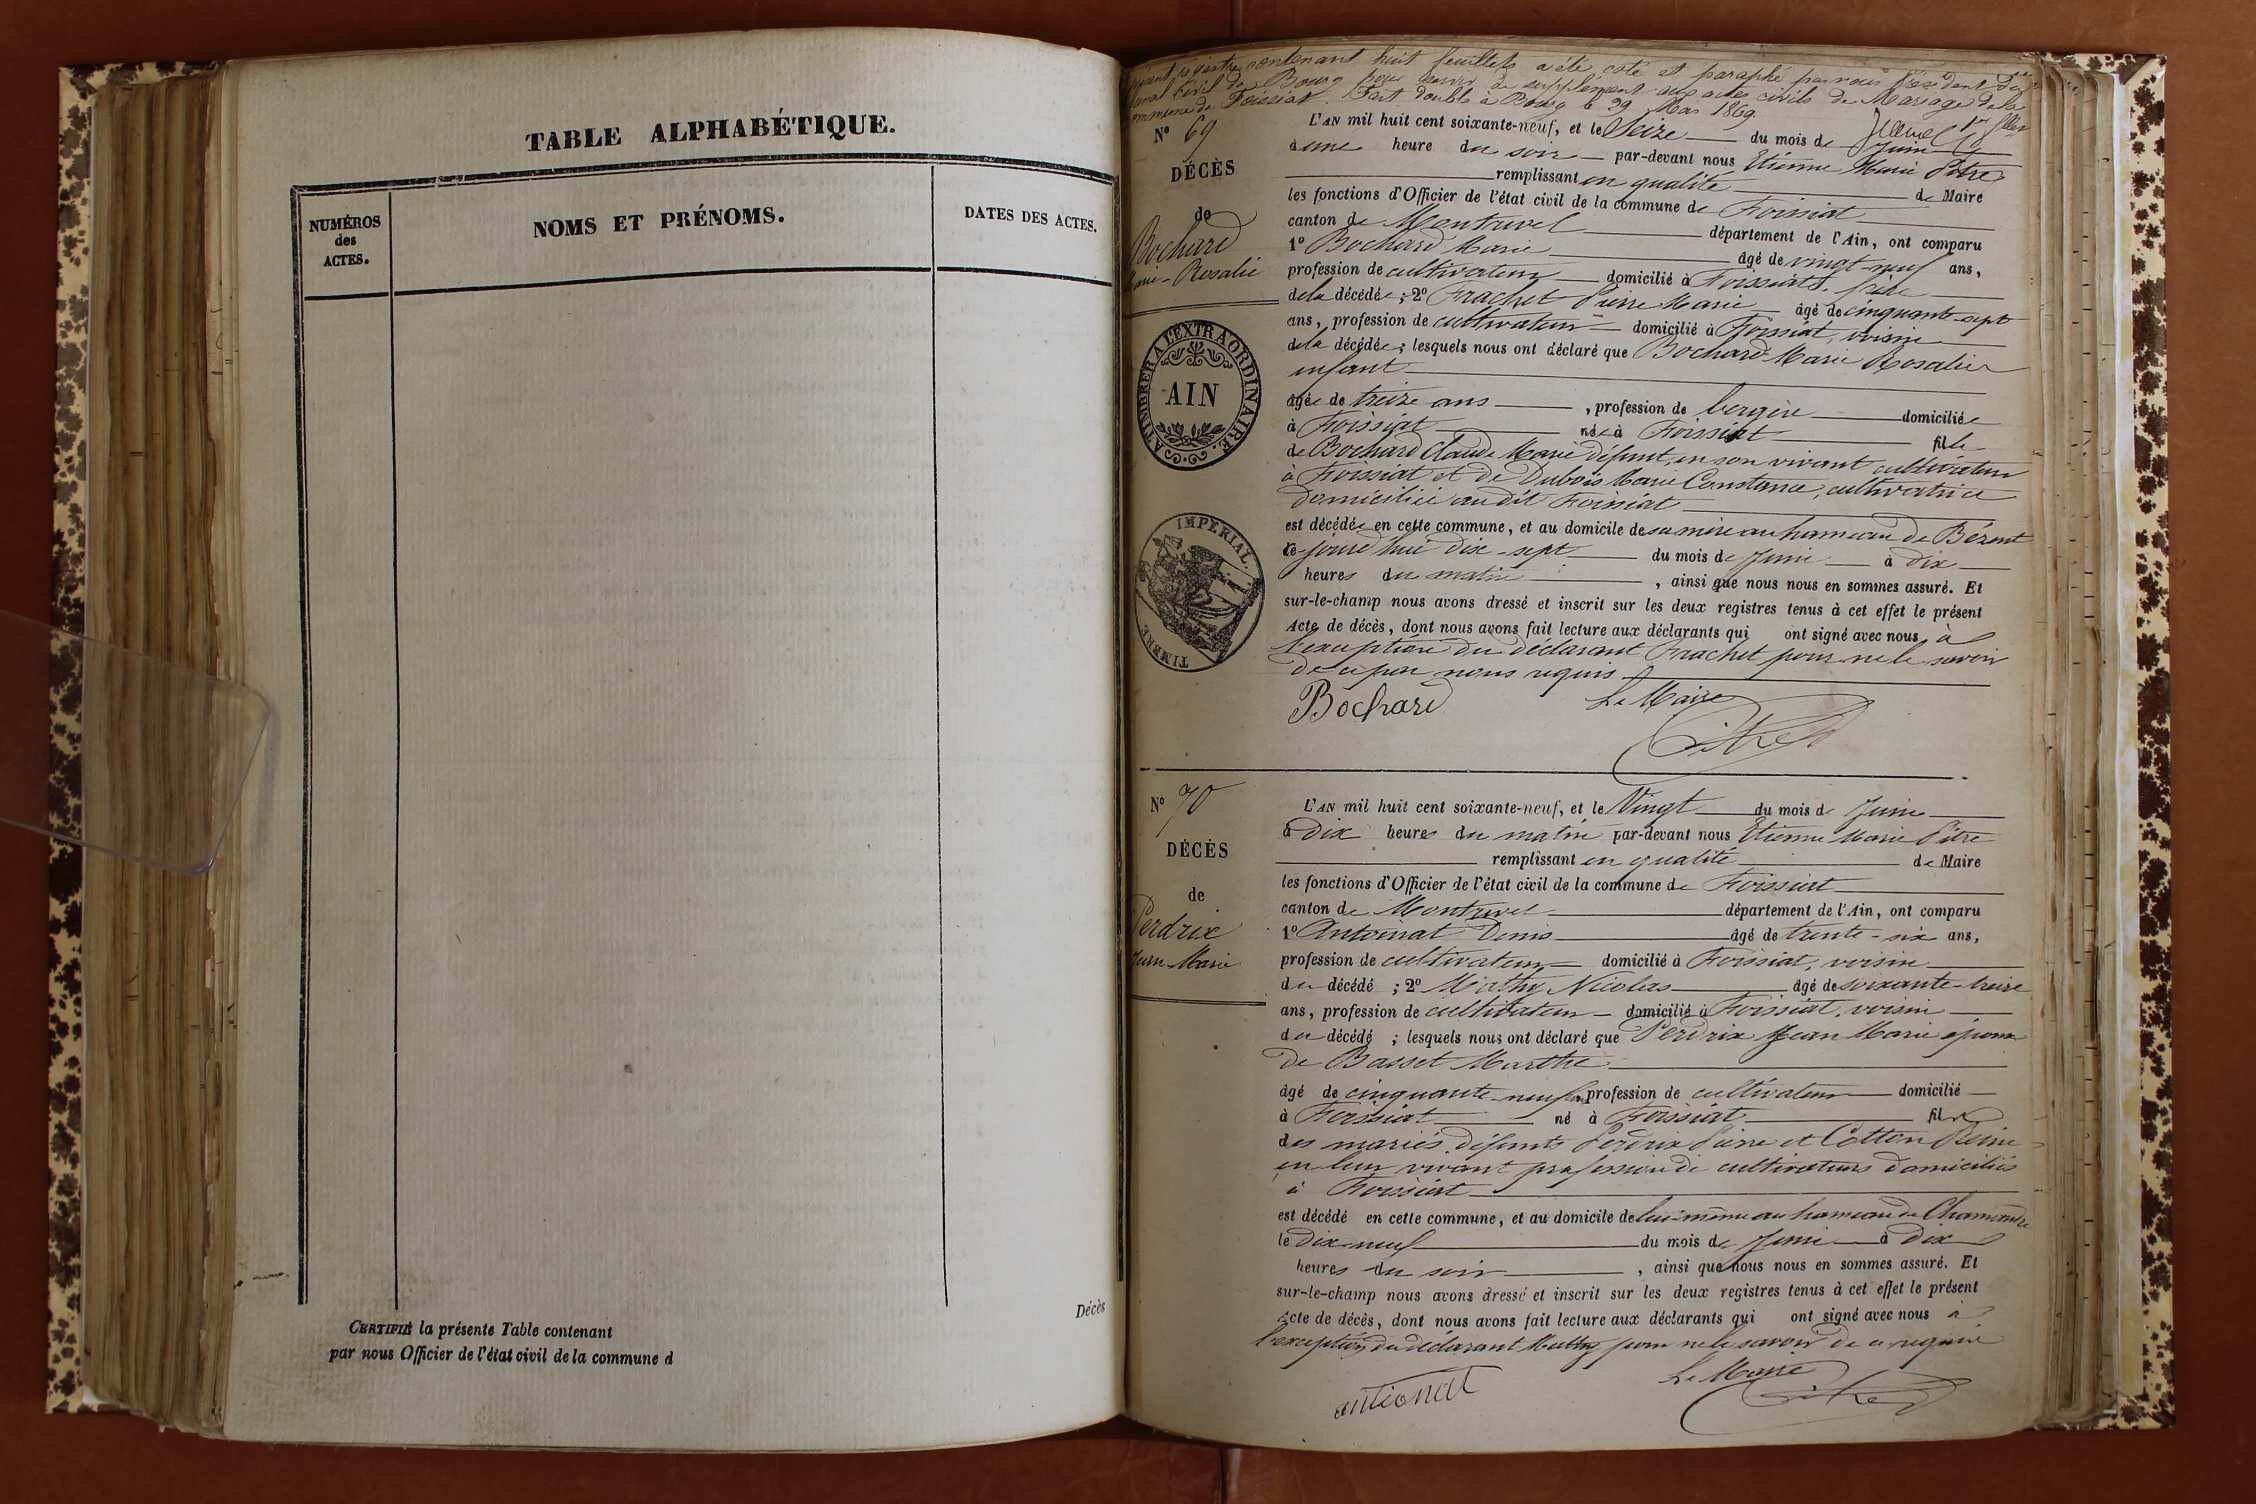 TABLE ALPHABÉTIQUE.
NUMÉROS
des
ACTES.
NOMS ET PRÉNOMS.
DATES DES ACTES.
Décès
CERTIFIÉ la présente Table contenant
par nous Officier de l'état civil de la commune d
contenant huit feuillets a été coté et paraphé par nous
Bourg pour servir de supplément aux actes civils de Mariage de la
commune de Foissiat. Fait double à Bourg le 29 Mai 1869.
N° 69
DÉCÈS
de
Bochard
Marie-Rosalie
A TIMBRER A L'EXTRAORDINAIRE.
AIN
TIMBRE IMPÉRIAL.
L'AN mil huit cent soixante-neuf, et le Seize du mois de Juin
à une heure du soir par-devant nous Etienne Marie Pitre
remplissant en qualité de Maire
les fonctions d'Officier de l'état civil de la commune de Foissiat
canton de Montrevel département de l'Ain, ont comparu
1° Bochard Marie âgé de vingt-neuf ans,
profession de cultivateur domicilié à Foissiat,
de la décédée ; 2° Frachet Pierre Marie âgé de cinquante-sept
ans, profession de cultivateur domicilié à Foissiat, voisin
de la décédée ; lesquels nous ont déclaré que Bochard Marie Rosalie
enfant
âgée de treize ans , profession de bergère domiciliée
à Foissiat née à Foissiat fille
de Bochard Claude Marie défunt, en son vivant cultivateur
à Foissiat et de Dubois Marie Constance, cultivatrice
domiciliée au dit Foissiat
est décédée en cette commune, et au domicile de sa mère au hameau de Bézent
ce jourd'hui dix-sept du mois de Juin à dix
heures du matin , ainsi que nous nous en sommes assuré. Et
sur-le-champ nous avons dressé et inscrit sur les deux registres tenus à cet effet le présent
Acte de décès, dont nous avons fait lecture aux déclarants qui ont signé avec nous à
l'exception du déclarant Frachet pour ne le savoir
de ce par nous requis
Bochard Le Maire
Pitre
N° 70
DÉCÈS
de
Perdrix
Jean-Marie
L'AN mil huit cent soixante-neuf, et le Vingt du mois de Juin
à dix heures du matin par-devant nous Etienne Marie Pitre
remplissant en qualité de Maire
les fonctions d'Officier de l'état civil de la commune de Foissiat
canton de Montrevel département de l'Ain, ont comparu
1° Antoinat Denis âgé de trente-six ans,
profession de cultivateur domicilié à Foissiat, voisin
du décédé ; 2° Mathy Nicolas âgé de soixante-treize
ans, profession de cultivateur domicilié à Foissiat, voisin
du décédé ; lesquels nous ont déclaré que Perdrix Jean Marie époux
de Basset Marthe
âgé de cinquante-neuf ans profession de cultivateur domicilié
à Foissiat né à Foissiat fils
des mariés défunts Perdrix Pierre et Cotton Reine
en leur vivant profession de cultivateurs domiciliés
à Foissiat
est décédé en cette commune, et au domicile de lui-même au hameau de Chamandre
le dix-neuf du mois de Juin à dix
heures du soir , ainsi que nous nous en sommes assuré. Et
sur-le-champ nous avons dressé et inscrit sur les deux registres tenus à cet effet le présent
Acte de décès, dont nous avons fait lecture aux déclarants qui ont signé avec nous à
l'exception du déclarant Mathy pour ne le savoir de ce requis
antionat Le Maire
Pitre